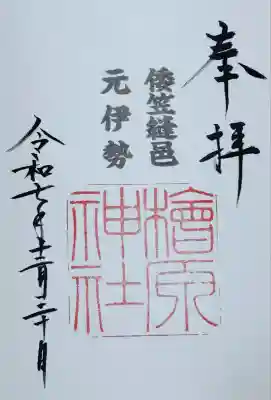 奉拝
倭笠縫邑
元伊勢
檜原神社
令和七年十二月二十日